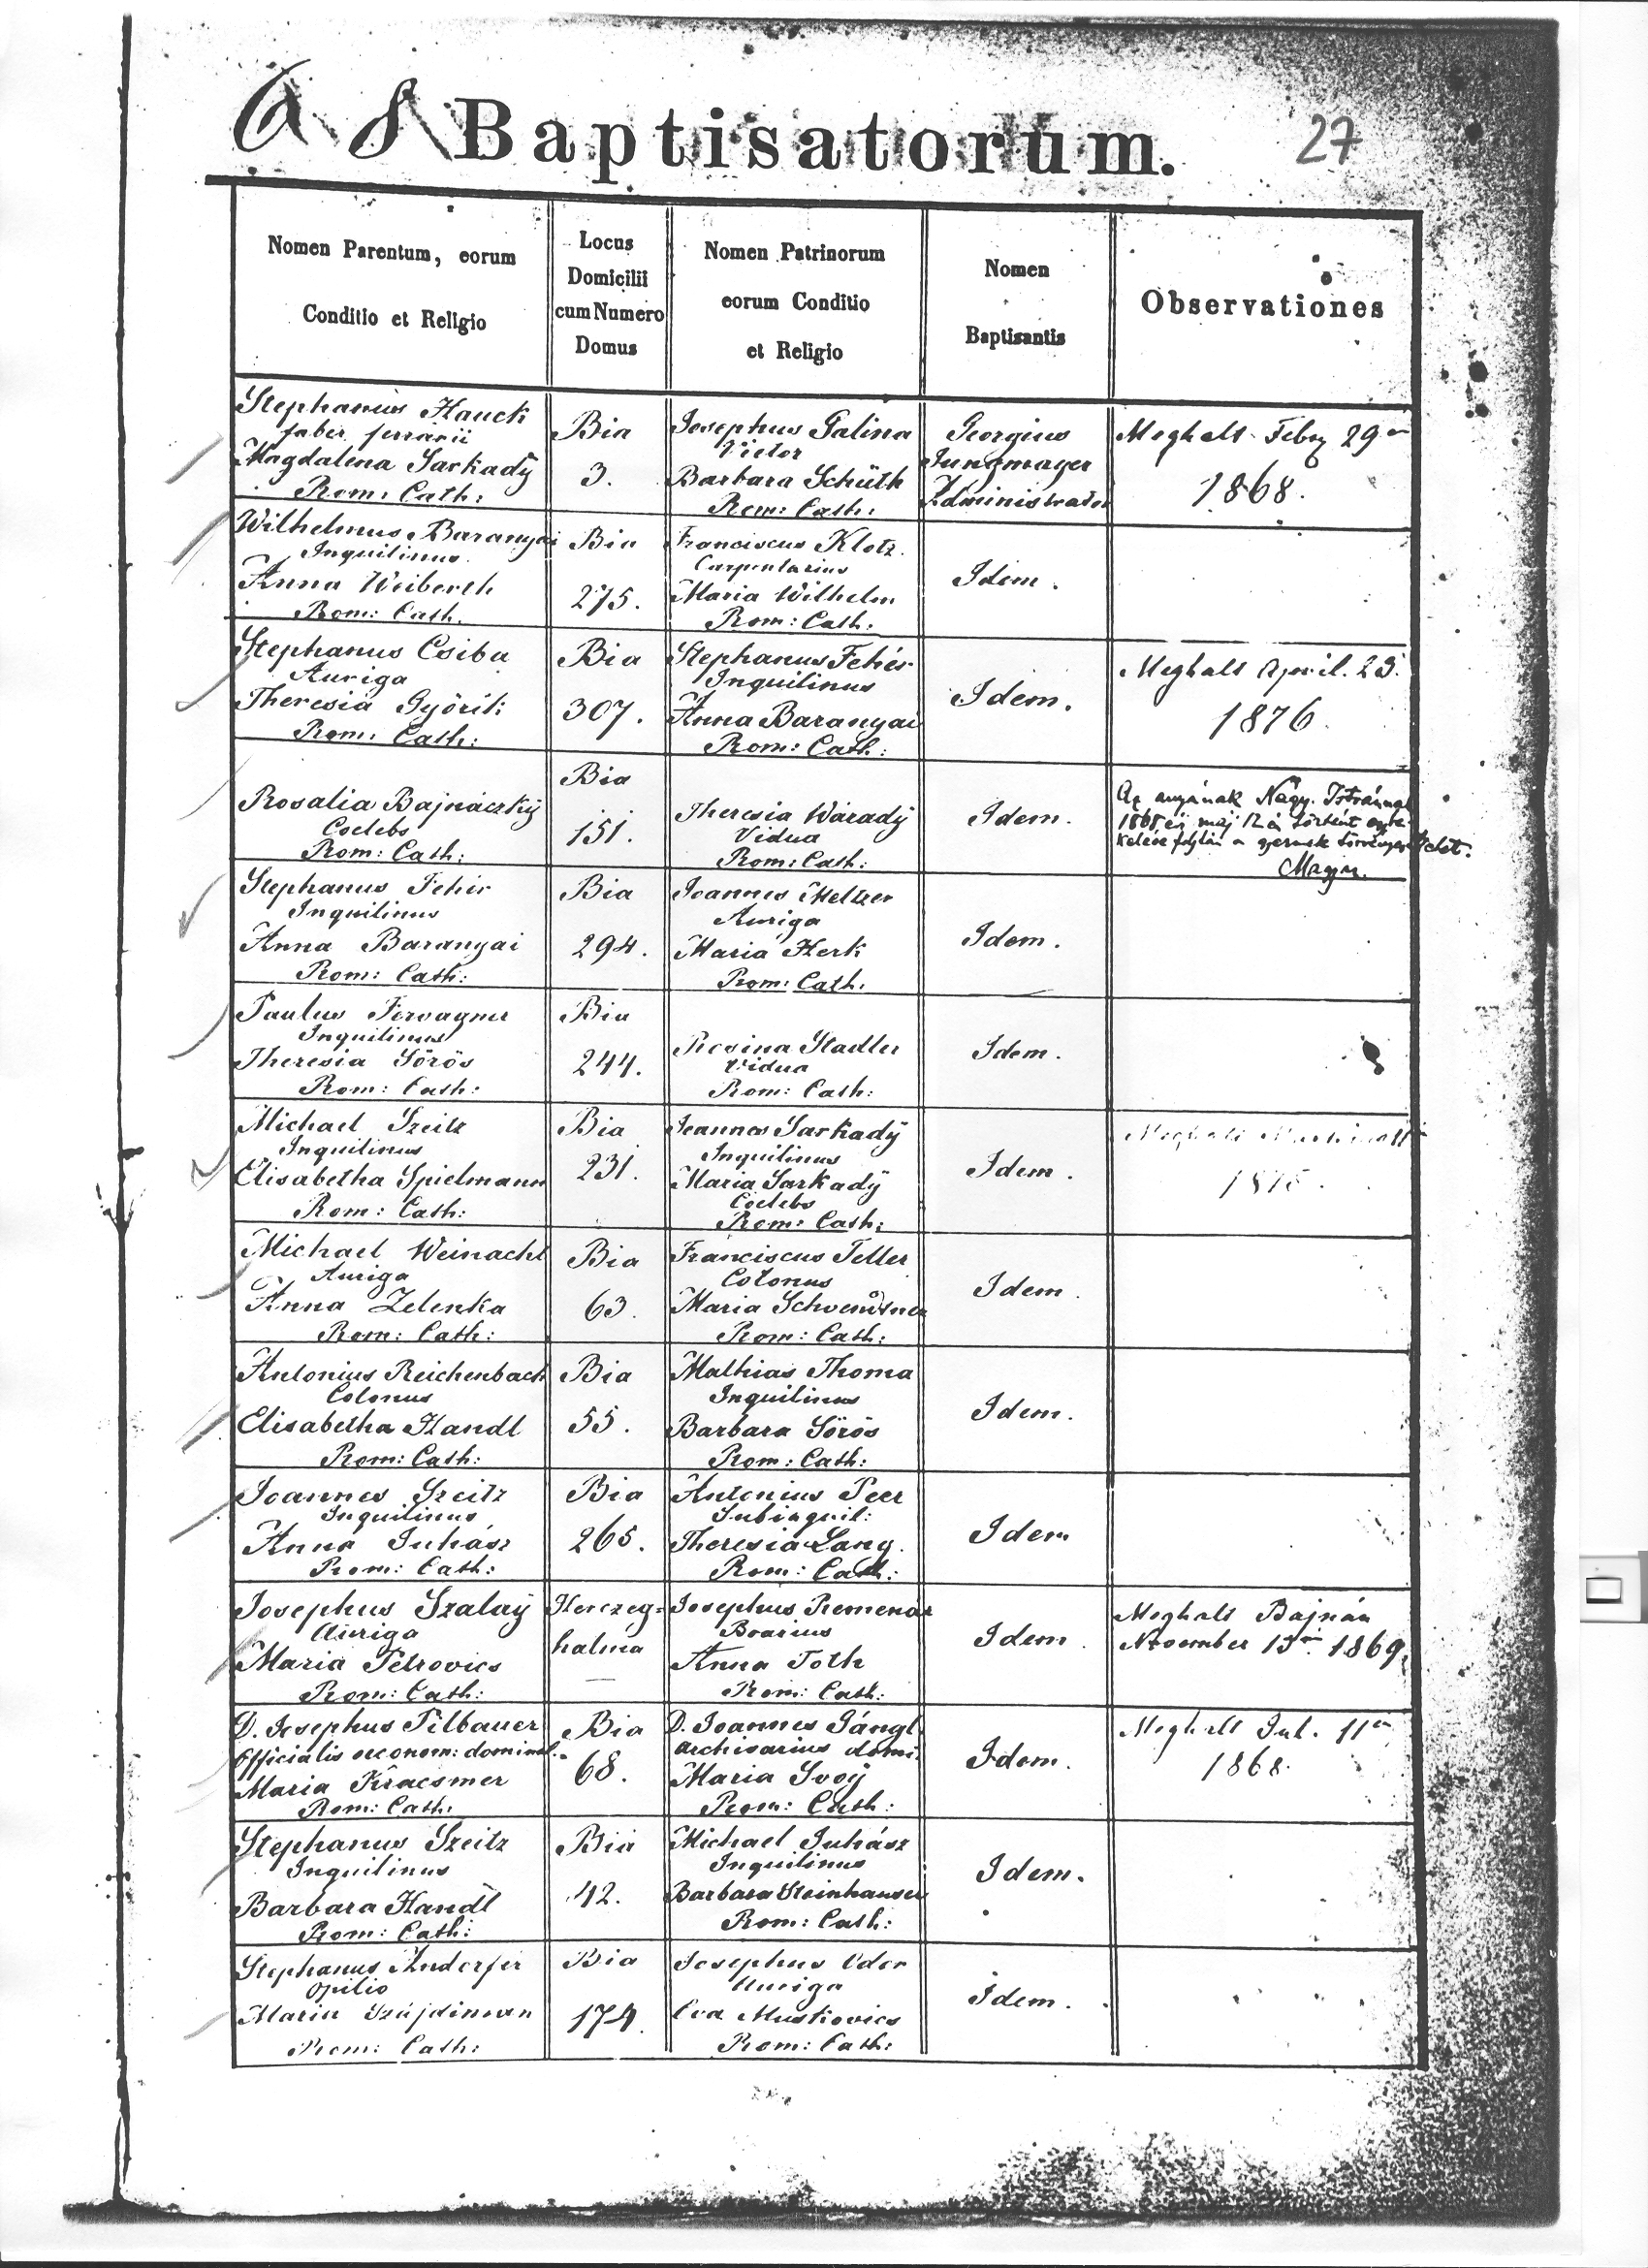 68 Baptisatorum. 27
Nomen Parentum, eorum
Conditio et Religio
Locus
Domicilii
cum Numero
Domus
Nomen Patrinorum
eorum Conditio
et Religio
Nomen
Baptisantis
Observationes
Stephanus Hauck
faber ferrarii
Magdalena Sarkadÿ
Rom: Cath:
Bia
3.
Josephus Galina
Vietor
Barbara Schüth
Rom: Cath:
Georgius
Jungmayer
Administrator
Meghalt Febr 29én
1868.
Wilhelmus Baranyai
Inquilinus
Anna Weiberth
Rom: Cath.
Bia
275.
Franciscus Klotz.
Carpentarius
Maria Wilhelm
Rom: Cath:
Idem.
Stephanus Csiba
Auriga
Theresia Györik
Rom: Cath:
Bia
307.
Stephanus Fehér
Inquilinus
Anna Baranyai
Rom: Cath:
Idem.
Meghalt April. 23.
1876.
Rosalia Bajnáczkÿ
Coelebs
Rom: Cath:
Bia
151.
Theresia Waradÿ
Vidua
Rom: Cath:
Idem.
Az anyának Nagy Istvánnal
1868 évi máj 12én történt egybe-
kelése folytán a gyermek
Stephanus Fehér
Inquilinus
Anna Baranyai
Rom: Cath:
Bia
294.
Joannes Meltzer
Auriga
Maria Herk
Rom: Cath.
Idem.
Paulus
Inquilinus
Theresia Sörös
Rom: Cath:
Bia
244.
Rosina Stadler
Vidua
Rom: Cath:
Idem.
Michael Szeitz
Inquilinus
Elisabetha Spielmann
Rom: Cath:
Bia
231.
Joannes Sarkadÿ
Inquilinus
Maria Sarkadÿ
Coelebs
Rom: Cath:
Idem.
Meghalt
Michael Weinacht
Auriga
Anna Zelenka
Rom: Cath:
Bia
63.
Franciscus Teller
Colonus
Maria
Rom: Cath:
Idem.
Antonius Reichenbach
Colonus
Elisabetha Handl
Rom: Cath:
Bia
55.
Mathias Thoma
Inquilinus
Barbara Sörös
Rom: Cath:
Idem.
Joannes Szeitz
Inquilinus
Anna Juhász
Rom: Cath:
Bia
265.
Antonius Peer
Subinquil:
Theresia Lang.
Rom: Cath:
Idem
Josephus Szalaÿ
Auriga
Maria Petrovics
Rom: Cath:
Herczeg=
halma
Josephus Remenár
Boarius
Anna Toth
Rom: Cath:
Idem.
Meghalt Bajnán
November 13án 1869.
D. Josephus Pilbauer
Officialis oeconom: dominal.
Maria Kracsmer
Rom: Cath:
Bia
68.
D. Joannes Gángl
archivarius domi:
Maria Svoÿ
Rom: Cath:
Idem.
Meghalt Jul. 11én
1868.
Stephanus Szeitz
Inquilinus
Barbara Handl
Rom: Cath:
Bia
42.
Michael Juhász
Inquilinus
Barbara Steinhauser
Rom: Cath:
Idem.
Stephanus
Opilio
Maria
Rom: Cath:
Bia
174.
Josephus Oder
Auriga
Eva Muskovics
Rom: Cath:
Idem.